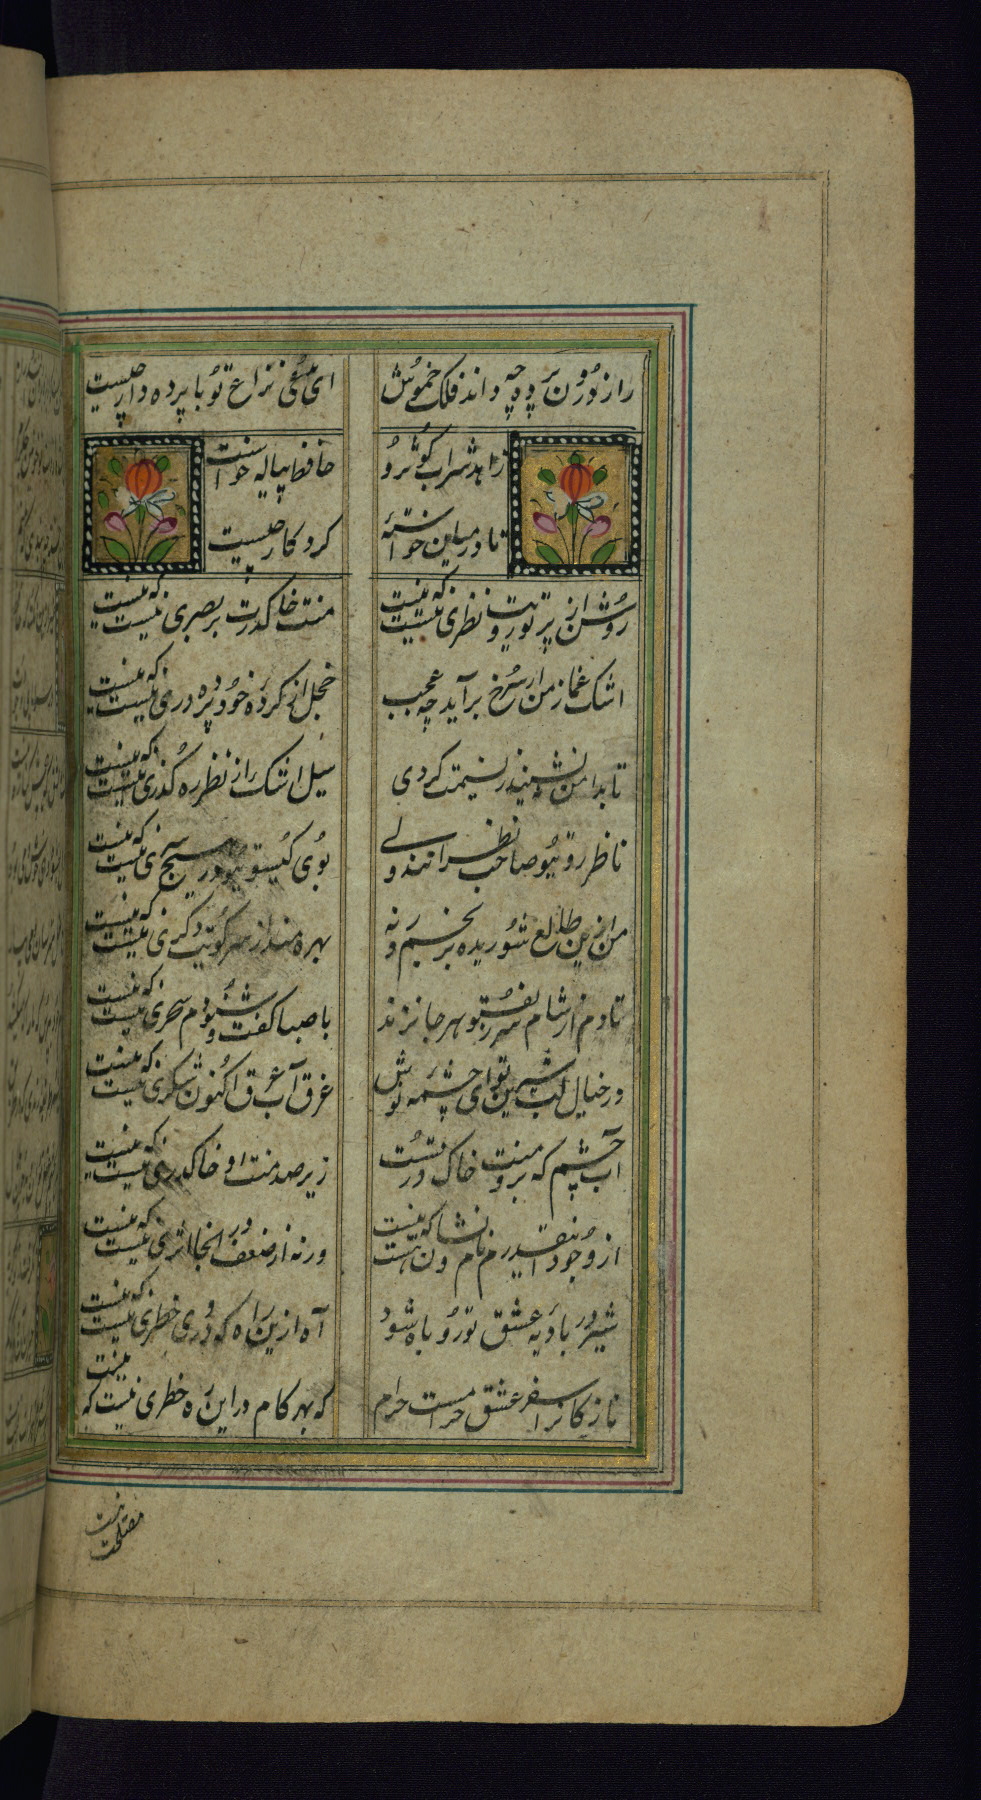 راز درون پرده چه داند فلک خموش
ای مدعی نزاع تو با پرده دار چیست
زاهد شراب کوثر و
حافظ پیاله خواست
تا در میان خواستهٔ
کردکار چیست
روشن از پرتو رویت نظری نیست که نیست
منت خاک درت بر بصری نیست که نیست
اشک غماز من ار سرخ برآید چه عجب
خجل از کردهٔ خود پرده دری نیست که نیست
تا بدامن ننشیند ز نسیمت کردی
سیل اشک از نظرم ره کذری نیست که نیست
ناظر روی تو صاحب نظرانند ولی
بوی کیسوی تو در هیچ سری نیست که نیست
من ازین طالع شوریده برنجم ور نه
بهره مند از سر کویت دکری نیست که نیست
تا دم از شام سر زلف تو هر جا نزنند
با صبا کفت و شنودم سحری نیست که نیست
در خیال لب شیرین تو ای چشمه نوش
غرق آب عرق اکنون شکری نیست که نیست
آب چشمم که برو منت خاک در تست
زیر صد منت او خاک دری نیست که نیست
از وجود اینقدرم نام و نشان هست که نیست
ورنه از ضعف در آنجا اثری نیست که نیست
شیر در بادیه عشق تو روباه شود
آه ازین راه که در وی خطری نیست که نیست
نازکانرا سفر عشق حرامست حرام
که بهر کام در این ره خطری نیست که نیست
مصلحت نیست